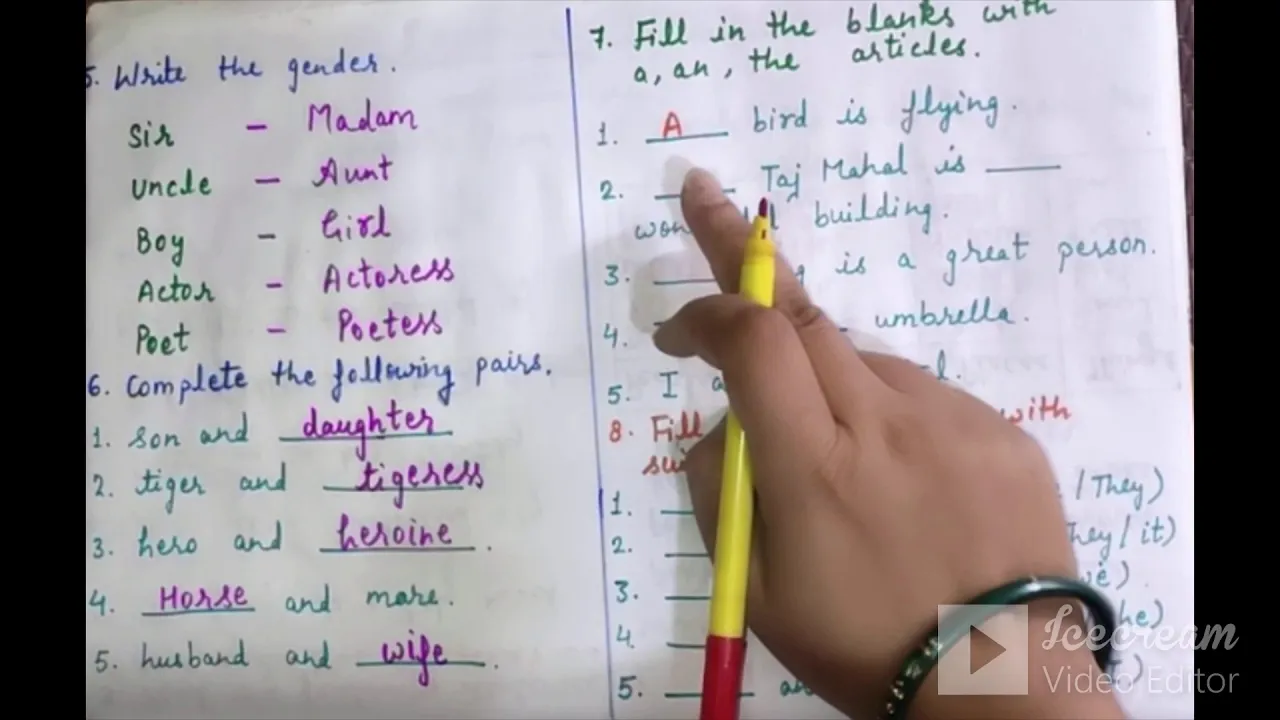 5. Write the gender.
Sir - Madam
Uncle - Aunt
Boy - Girl
Actor - Actoress
Poet - Poetess
6. Complete the following pairs.
1. son and daughter
2. tiger and tigeress
3. hero and heroine.
4. Horse and mare.
5. husband and wife.
7. Fill in the blanks with
a, an, the articles.
1. A bird is flying.
2. ___ Taj Mahal is ___
building.
3. ___ is a great person.
4. ___ umbrella.
5. I
8. Fill with
1. ___ / They)
2. ___ They / it)
3. ___
4. ___
5. ___
Icecream
Video Editor